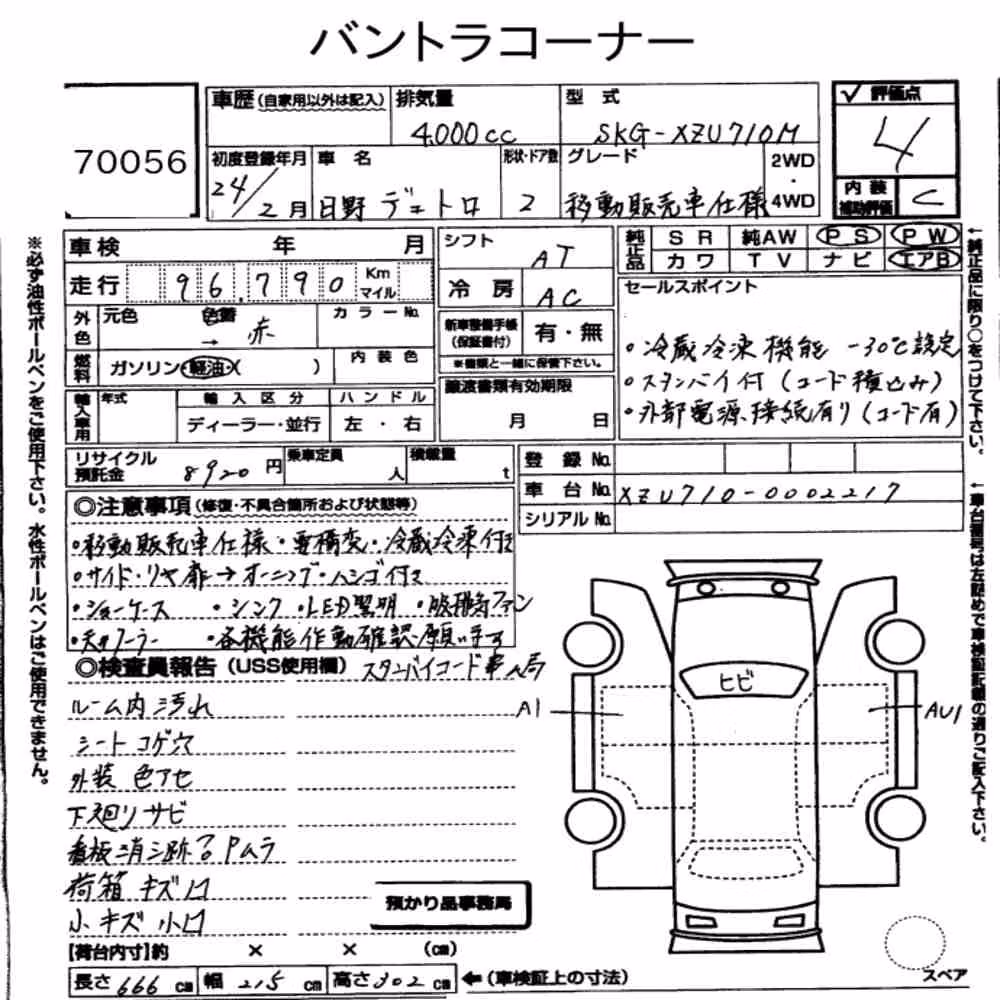 バントラコーナー
70056
車歴(自家用以外は記入) 排気量 4.000cc 型式 SKG-XZU710M
✓ 評価点 4
初度登録年月 24/2月 車名 日野 デュトロ 形状・ドア数 2 グレード 移動販売車仕様 2WD・4WD
内装補助評価 C
※必ず油性ボールペンをご使用下さい。水性ボールペンはご使用できません。
車検 年 月
走行 96.790 Km マイル
外色 元色 色替 → 赤 カラーNo.
燃料 ガソリン・軽油・( ) 内装色
輸入車用 年式 輸入区分 ディーラー・並行 ハンドル 左・右
シフト AT
冷房 AC
新車整備手帳(保証書付) 有・無
※書類と一緒に保管下さい。
譲渡書類有効期限 月 日
純正品 SR 純AW PS PW
カワ TV ナビ エアB
←純正品に限り○をつけて下さい。
セールスポイント
・冷蔵冷凍機能 -30℃設定
・スタンバイ付(コード積込み)
・外部電源接続有り(コード有)
リサイクル預託金 8920円 乗車定員 人 積載量 t
登録No.
車台No. XZU710-0002217
シリアルNo.
←車台番号は左詰めで車検証記載の通りご記入下さい。
◎注意事項(修復・不具合個所および状態等)
・移動販売車仕様・要構変・冷蔵冷凍付き
・サイド・リヤ扉→オーニング・ハシゴ付き
・ショーケース ・シンク ・LED照明 ・ファン
・クーラー ・各機能作動確認願います
◎検査員報告(USS使用欄) スタンバイコード事ム局
ルーム内汚れ
シートコゲ穴
外装 色アセ
下廻りサビ
看板消し跡 Pムラ
荷箱 キズ凹
小キズ 小凹
預かり品事務局
ヒビ
A1
AU1
スペア
【荷台内寸】約 × × (cm)
長さ 666 cm 幅 215 cm 高さ 302 cm ←(車検証上の寸法)